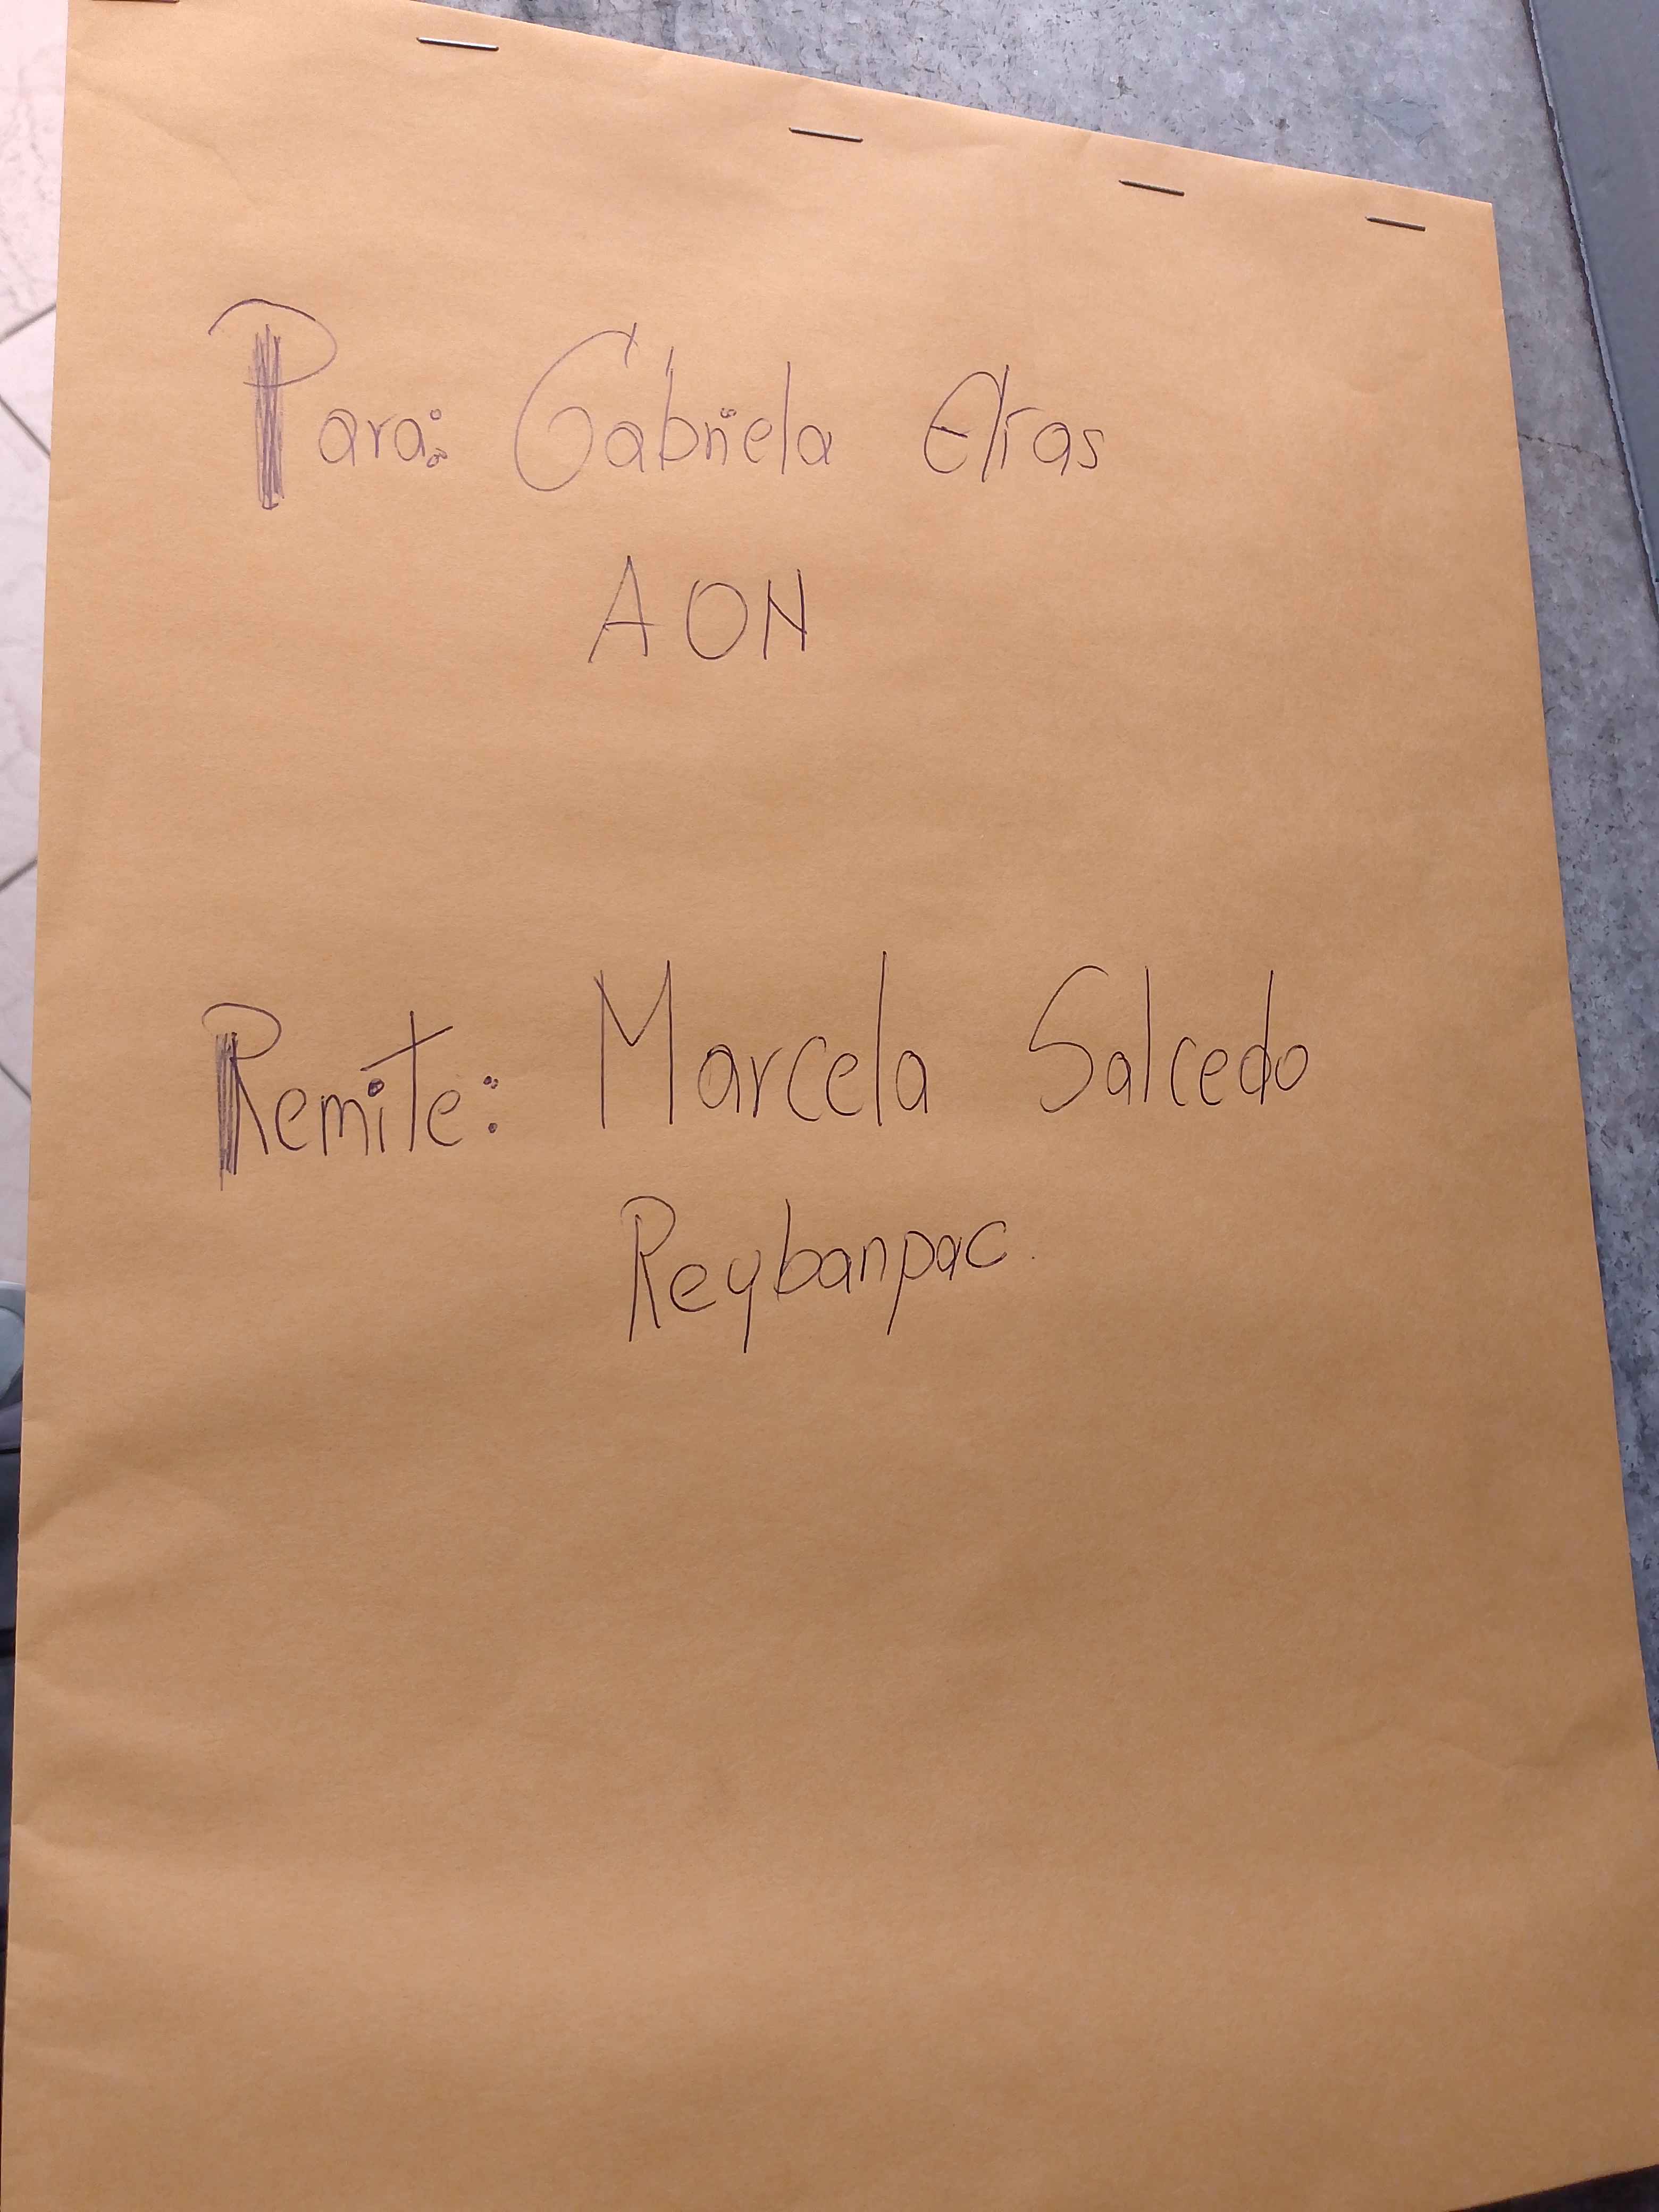 Para: Gabriela Elías
AON
Remite: Marcela Salcedo
Reybanpac.